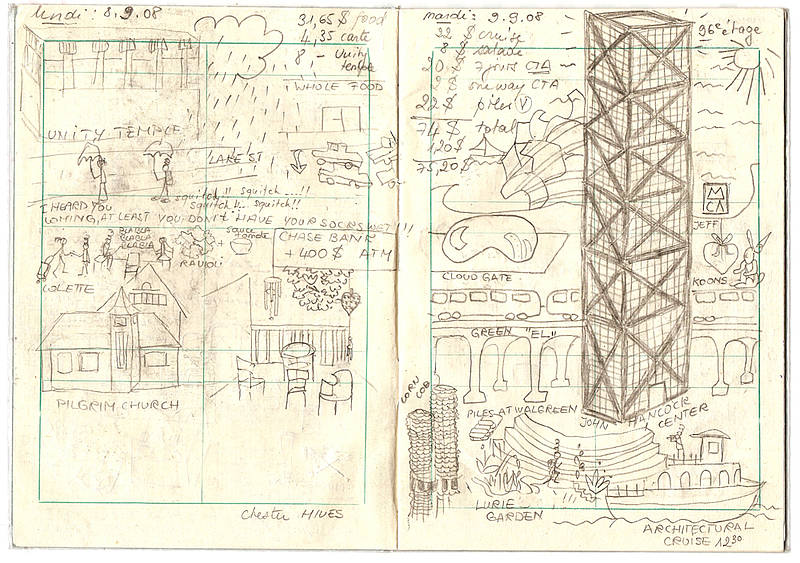 lundi : 8.9.08
31,65 $ food
4,35 carte
8 - Unity
temple
WHOLE FOOD
UNITY TEMPLE
LAKE ST
squitch !! squitch ...!!
squitch !.. squitch!!
I HEARD YOU
COMING, AT LEAST YOU DON'T HAVE YOUR SOCKS WET !!!
BLABLA
BLABLA
BLABLA
RAVIOLI
+ sauce
tomate
CHASE BANK
+ 400 $ ATM
COLETTE
PILGRIM CHURCH
Chester HIMES
mardi : 9.9.08
22 $ cruise
8 $ salade
20 $ 7 jours CTA
2 $ one way CTA
22 $ piles
74 $ total
120 $
75,20 $
96e étage
MCA
JEFF
KOONS
CLOUD GATE
GREEN "EL"
CORN
COB
PILES AT WALGREEN
JOHN HANCOCK
CENTER
LURIE
GARDEN
ARCHITECTURAL
CRUISE 12 30